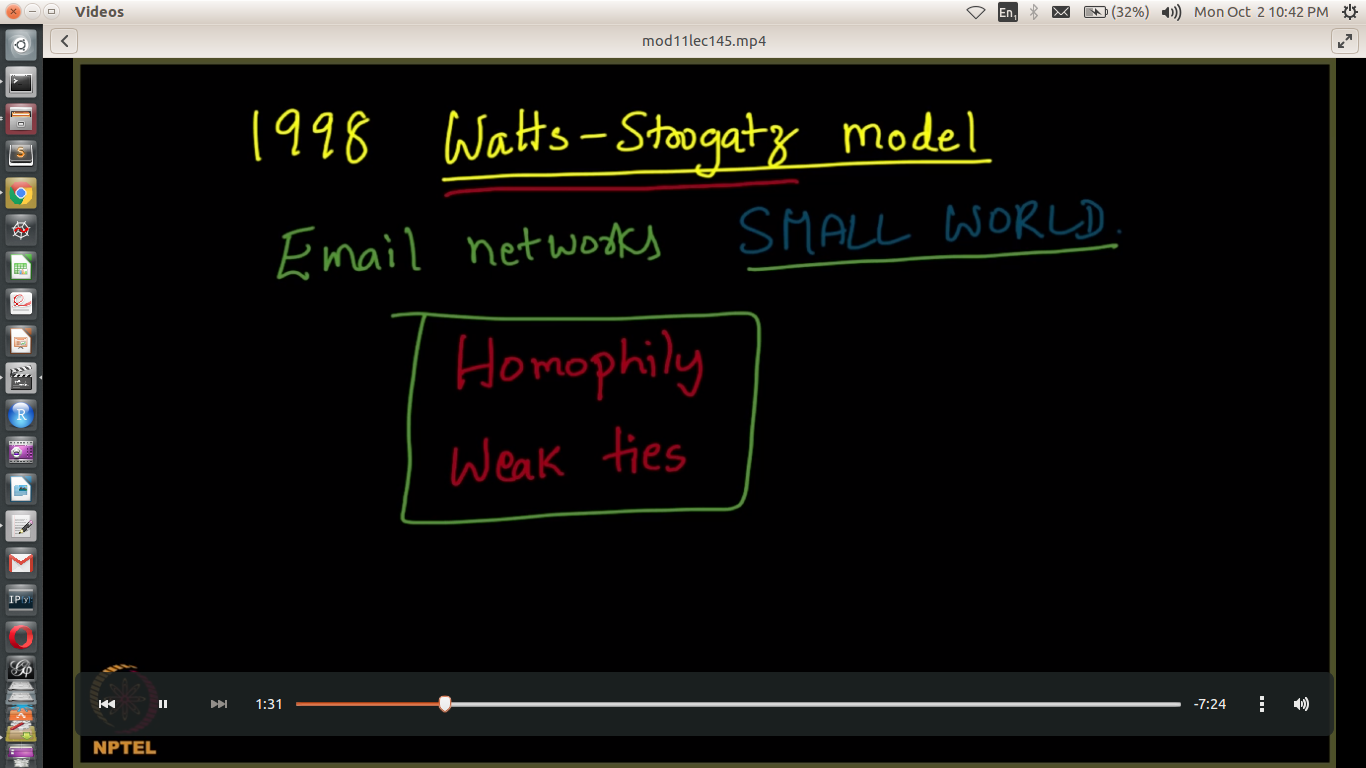 Videos
En1
(32%)
Mon Oct 2 10:42 PM
mod11lec145.mp4
1998 Watts-Stoogatz model
Email networks SMALL WORLD.
Homophily
Weak ties
1:31
-7:24
NPTEL